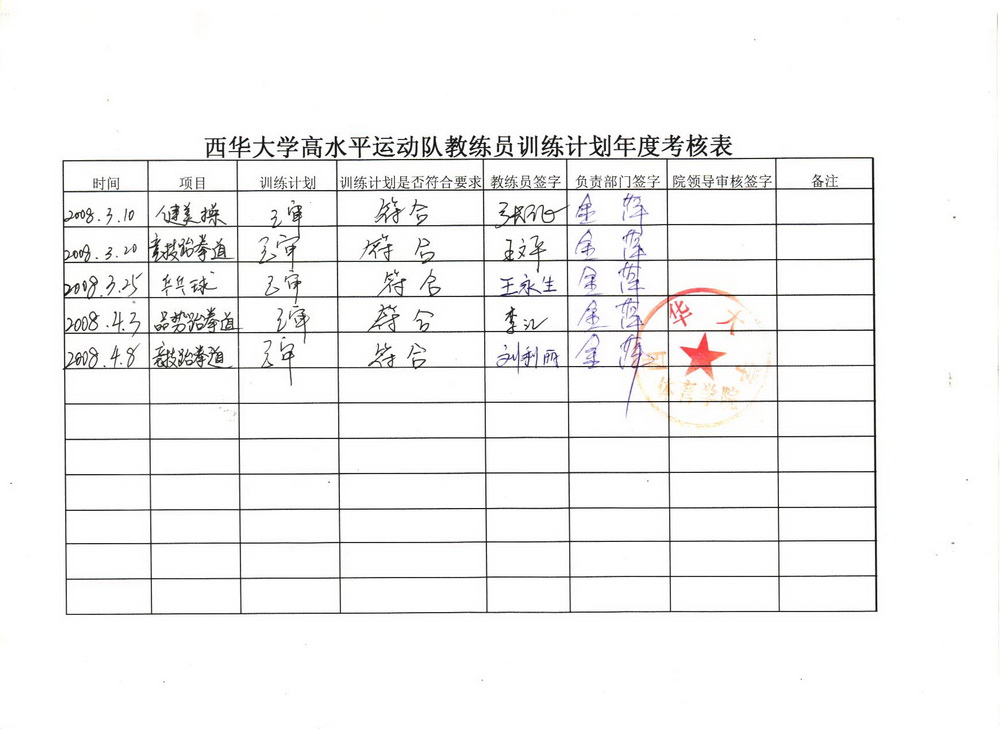 西华大学高水平运动队教练员训练计划年度考核表
时间 项目 训练计划 训练计划是否符合要求 教练员签字 负责部门签字 院领导审核签字 备注
2008.3.10 健美操 审 符合 金萍
2008.3.20 竞技跆拳道 审 符合 王文平 金萍
2008.3.25 乒乓球 审 符合 王永生 金萍
2008.4.3 品势跆拳道 审 符合 李江 金萍
2008.4.8 竞技跆拳道 审 符合 刘利丽 金萍
西华大学
体育学院